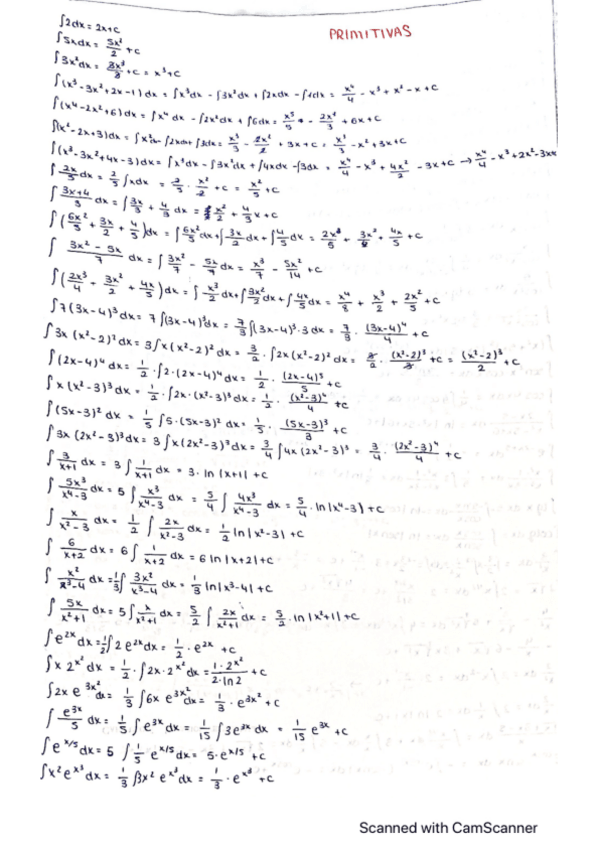 PRIMITIVAS
∫2dx = 2x+C
∫5xdx = 5x²/2 + C
∫3x²dx = 3x³/3 + C = x³+C
∫(x³-3x²+2x-1)dx = ∫x³dx - ∫3x²dx + ∫2xdx - ∫1dx = x⁴/4 - x³ + x² - x + C
∫(x⁴-2x²+6)dx = ∫x⁴dx - ∫2x²dx + ∫6dx = x⁵/5 - 2x³/3 + 6x + C
∫(x²-2x+3)dx = ∫x²dx - ∫2xdx + ∫3dx = x³/3 - 2x²/2 + 3x + C = x³/3 - x² + 3x + C
∫(x³-3x²+4x-3)dx = ∫x³dx - ∫3x²dx + ∫4xdx - ∫3dx = x⁴/4 - x³ + 4x²/2 - 3x + C → x⁴/4 - x³ + 2x² - 3x
∫2x/5 dx = 2/5 ∫xdx = 2/5 · x²/2 + C = x²/5 + C
∫(3x+4)/3 dx = ∫3x/3 + 4/3 dx = x²/2 + 4/3 x + C
∫(6x²/5 + 3x/2 + 4/5)dx = ∫6x²/5 dx + ∫3x/2 dx + ∫4/5 dx = 2x³/5 + 3x²/4 + 4x/5 + C
∫(3x²-5x)/7 dx = ∫3x²/7 - 5x/7 dx = x³/7 - 5x²/14 + C
∫(2x³/4 + 3x²/2 + 4x/5)dx = ∫x³/2 dx + ∫3x²/2 dx + ∫4x/5 dx = x⁴/8 + x³/2 + 2x²/5 + C
∫7(3x-4)³dx = 7∫(3x-4)³dx = 7/3 ∫(3x-4)³·3dx = 7/3 · (3x-4)⁴/4 + C
∫3x(x²-2)²dx = 3∫x(x²-2)²dx = 3/2 · ∫2x(x²-2)²dx = 3/2 · (x²-2)³/3 + C = (x²-2)³/2 + C
∫(2x-4)⁴dx = 1/2 · ∫2·(2x-4)⁴dx = 1/2 · (2x-4)⁵/5 + C
∫x(x²-3)³dx = 1/2 · ∫2x·(x²-3)³dx = 1/2 · (x²-3)⁴/4 + C
∫(5x-3)²dx = 1/5 ∫5·(5x-3)²dx = 1/5 · (5x-3)³/3 + C
∫3x(2x²-3)³dx = 3∫x(2x²-3)³dx = 3/4 ∫4x(2x²-3)³ = 3/4 · (2x²-3)⁴/4 + C
∫3/(x+1) dx = 3∫1/(x+1) dx = 3·ln|x+1| + C
∫5x³/(x⁴-3) dx = 5∫x³/(x⁴-3) dx = 5/4 ∫4x³/(x⁴-3) dx = 5/4 · ln|x⁴-3| + C
∫x/(x²-3) dx = 1/2 ∫2x/(x²-3) dx = 1/2 ln|x²-3| + C
∫6/(x+2) dx = 6∫1/(x+2) dx = 6 ln|x+2| + C
∫x²/(x³-4) dx = 1/3 ∫3x²/(x³-4) dx = 1/3 ln|x³-4| + C
∫5x/(x²+1) dx = 5∫x/(x²+1) dx = 5/2 ∫2x/(x²+1) dx = 5/2 · ln|x²+1| + C
∫e^2x dx = 1/2 ∫2e^2x dx = 1/2 · e^2x + C
∫x 2^x² dx = 1/2 · ∫2x·2^x² dx = 1·2^x²/2·ln2 + C
∫2x e^3x² dx = 1/3 ∫6x e^3x² dx = 1/3 · e^3x² + C
∫e^3x/5 dx = 1/5 ∫e^3x dx = 1/15 ∫3e^3x dx = 1/15 e^3x + C
∫e^x/5 dx = 5 ∫1/5 · e^x/5 dx = 5·e^x/5 + C
∫x²e^x³ dx = 1/3 ∫3x² e^x³ dx = 1/3 · e^x³ + C
Scanned with CamScanner